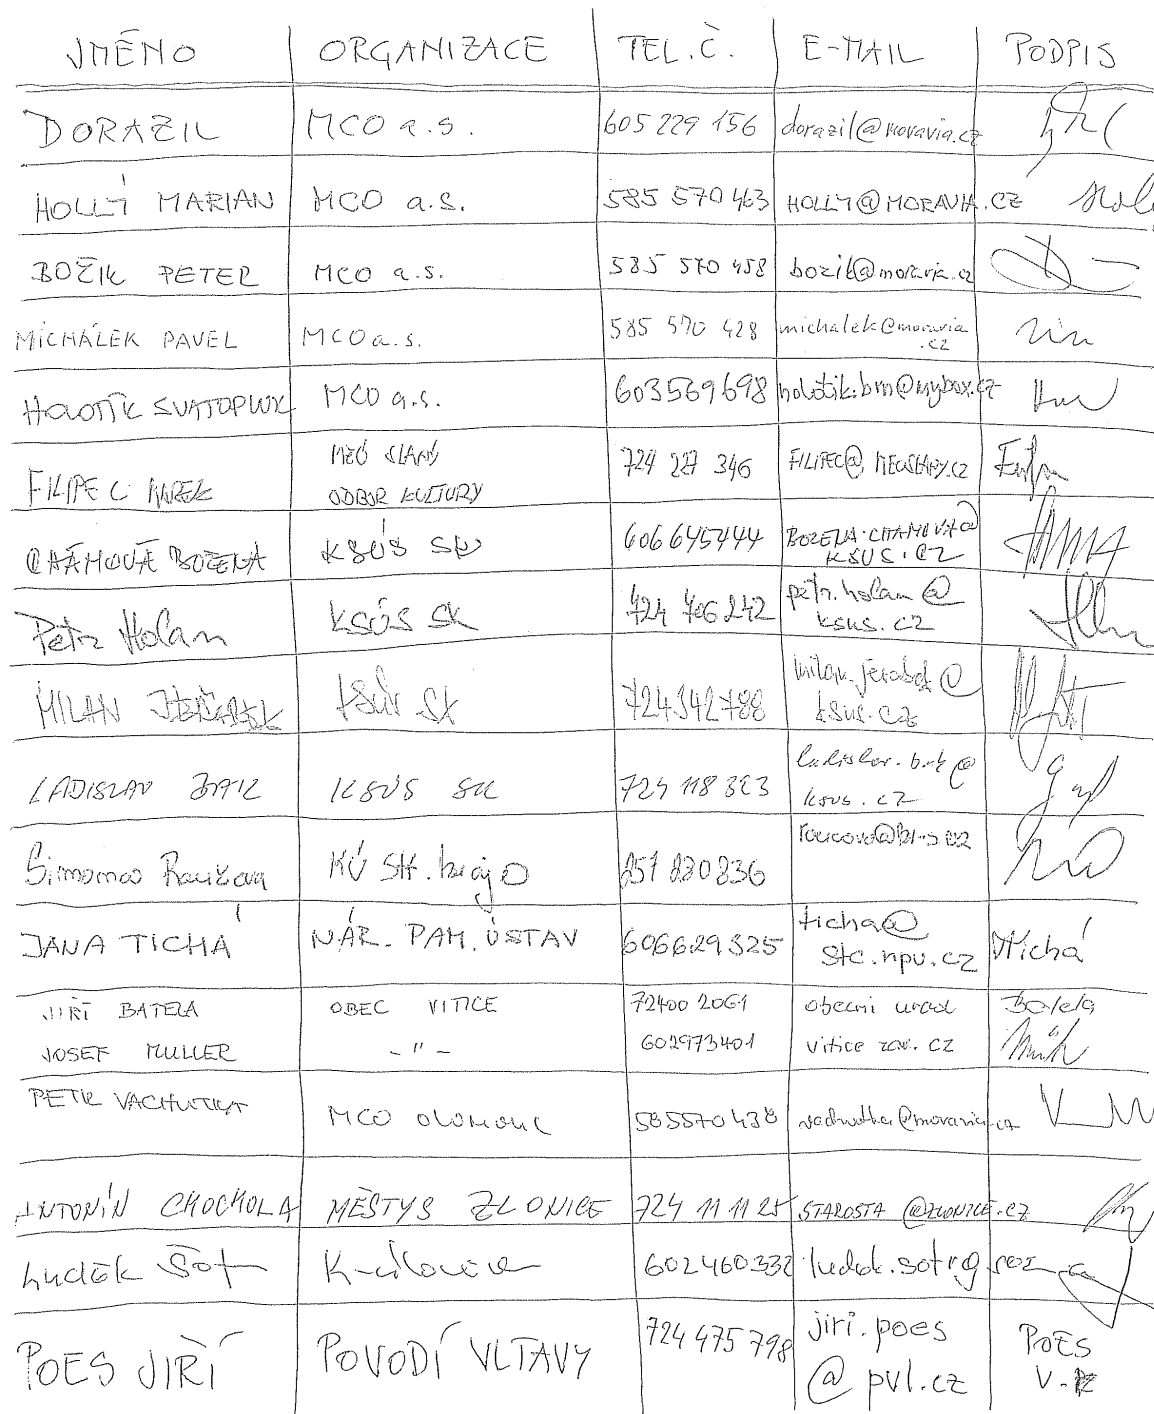 JMÉNO ORGANIZACE TEL.Č. E-MAIL PODPIS
DORAZIL MCO a.s. 605 229 156 dorazil@moravia.cz
HOLLÝ MARIAN MCO a.s. 585 570 463 HOLLY@MORAVIA.CZ
BOŽIK PETER MCO a.s. 585 570 458 bozik@moravia.cz
MICHÁLEK PAVEL MCO a.s. 585 570 428 michalek@moravia
.cz
HOLOTÍK SVATOPLUK MCO a.s. 603569698 holotik.brn@mybox.cz
MěÚ SLANÝ 724 227 346 FILIPEC@MEUSLANY.CZ
FILIPEC MAREK ODBOR KULTURY
CHÁMOVÁ BOŽENA KSÚS SK 606645444 BOZENA.CHAMOVA@
KSUS.CZ
Petr Holan KSÚS SK 724 706 242 petr.holan@
ksus.cz
MILAN JEŘÁBEK KSÚS SK 724342788 milan.jerabek@
ksus.cz
LADISLAV KSÚS SK 724 118 323 ladislav.
ksus.cz
Simona KÚ Stř. kraje 257 280 836
JANA TICHÁ NÁR. PAM. ÚSTAV 606629325 ticha@ Tichá
stc.npu.cz
JIŘÍ BATELA OBEC VITICE 72400 2061 obecni urad Batela
JOSEF MULLER -"- 602973401 vitice zav.cz
PETR VACHUTKA MCO OLOMOUC 585570438 vachutka@moravia.cz
ANTONÍN CHOCHOLA MĚSTYS ZLONICE 724 11 11 25 STAROSTA@ZLONICE.CZ
Luděk Šot 602460332 ludek.sot
POES JIŘÍ POVODÍ VLTAVY 724 475 798 jiri.poes POES
@pvl.cz V.